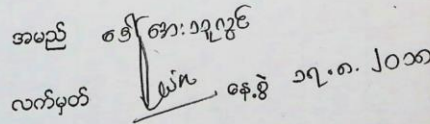 အမည် ဒေါ်အေးသူလွင်
လက်မှတ် နေ့စွဲ ၁၇.၈.၂၀၁၁